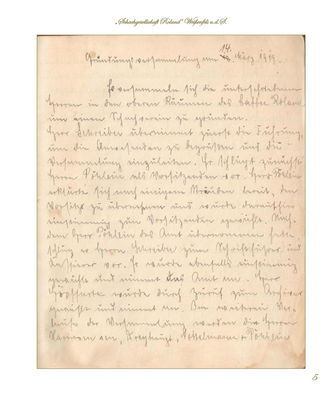 „Schachgesellschaft Roland“ Weißenfels a.d.S.
14.
Gründungsversammlung am März 1919.
Es versammeln sich die unterzeichneten
Herren in den oberen Räumen des Kaffee Roland
um einen Schachverein zu gründen.
Herr Schreiber übernimmt zuerst die Führung,
um die Anwesenden zu begrüßen und die
Versammlung einzuleiten. Er schlägt zunächst
Herrn als Vorsitzenden vor. Herr
erklärte sich nach einigem Sträuben bereit, den
Vorsitz zu übernehmen und wurde daraufhin
einstimmig zum Vorsitzenden gewählt. Nach-
dem Herr das Amt übernommen hatte
schlug er Herrn Schreiber zum Schriftführer und
Kassierer vor. Er wurde ebenfalls einstimmig
gewählt und nimmt das Amt an. Herr
wurde durch Zuruf zum
gewählt und nimmt an. Im weiteren Ver-
laufe der Versammlung werden die Herren
und
5